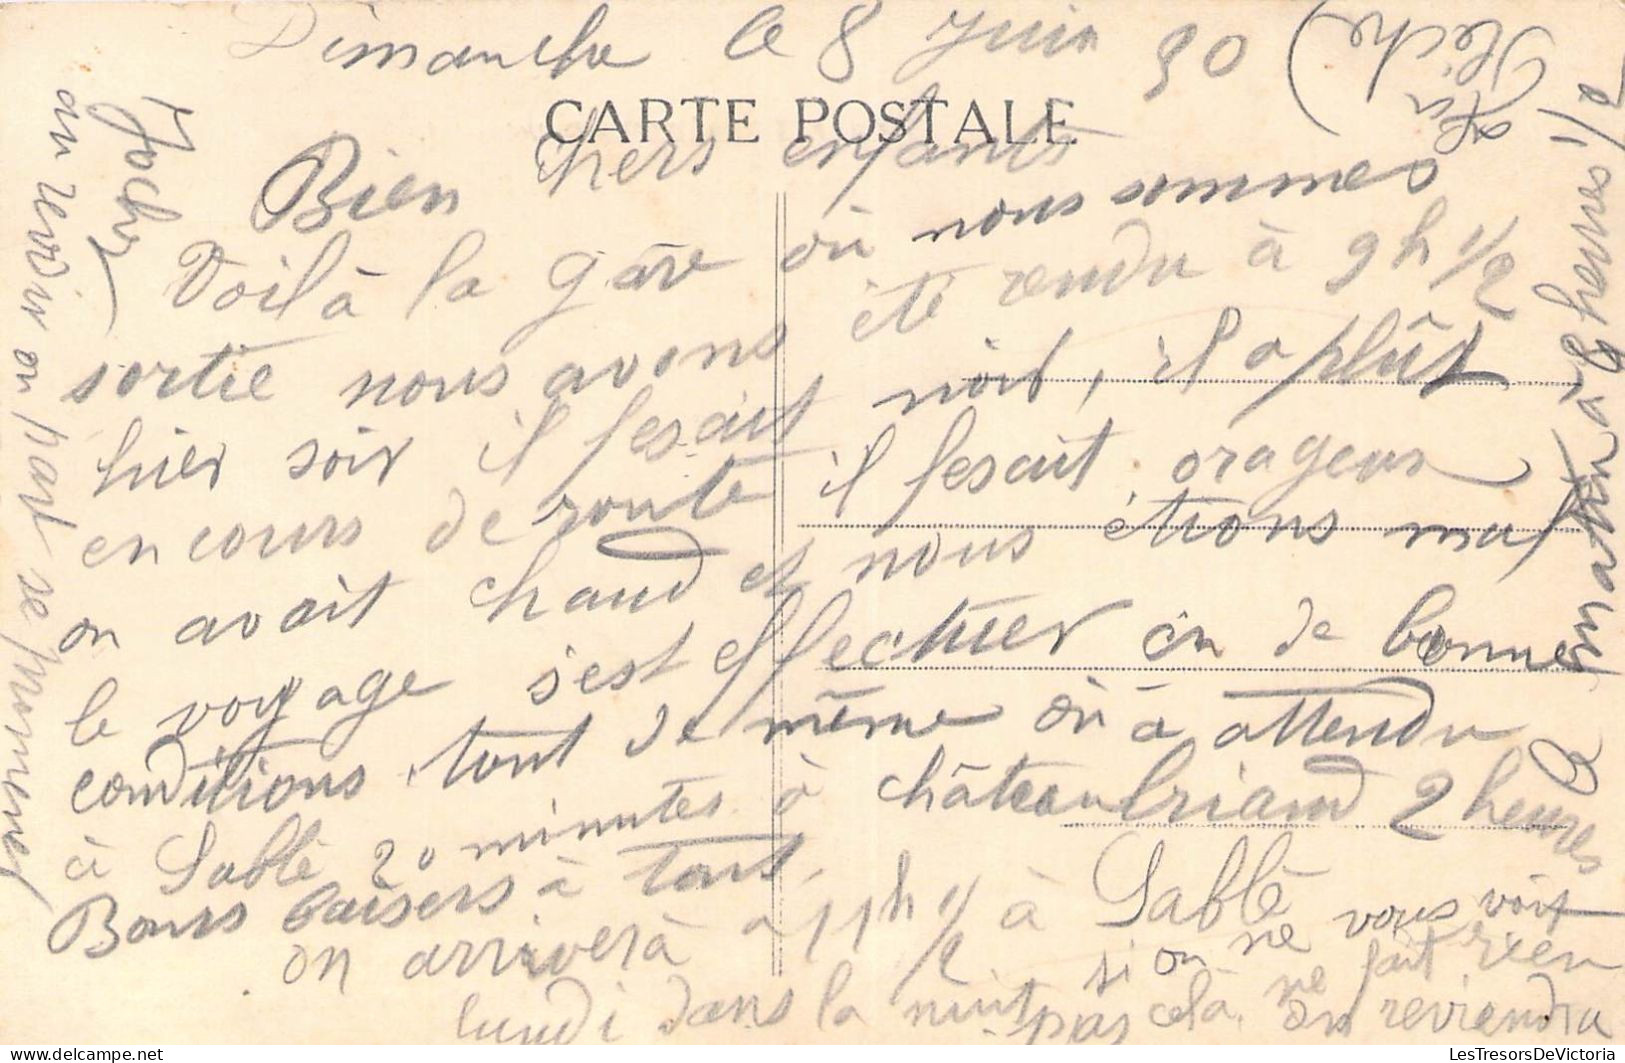 Dimanche le 8 Juin 30
(La Flèche)
CARTE POSTALE
Bien chers enfants
Voilà la gâre où nous sommes
sortie nous avons été rendu à 9 h 1/2
hier soir il fesait noir, il a plût
en cours de route il fesait orageux
on avait chaud et nous étions mal
le voyage s'est effectuer en de bonnes
conditions tout de même on à attendu
à Sablé 20 minutes à châteaubriand 2 heures
Bons baisers à tous.
on arriverà a 11 h 1/2 à Sablé
lundi dans la nuit si on ne vous voit
pas celà ne fait rien
on reviendra
matin a 9 heures 1/2
au revoir on part se promener